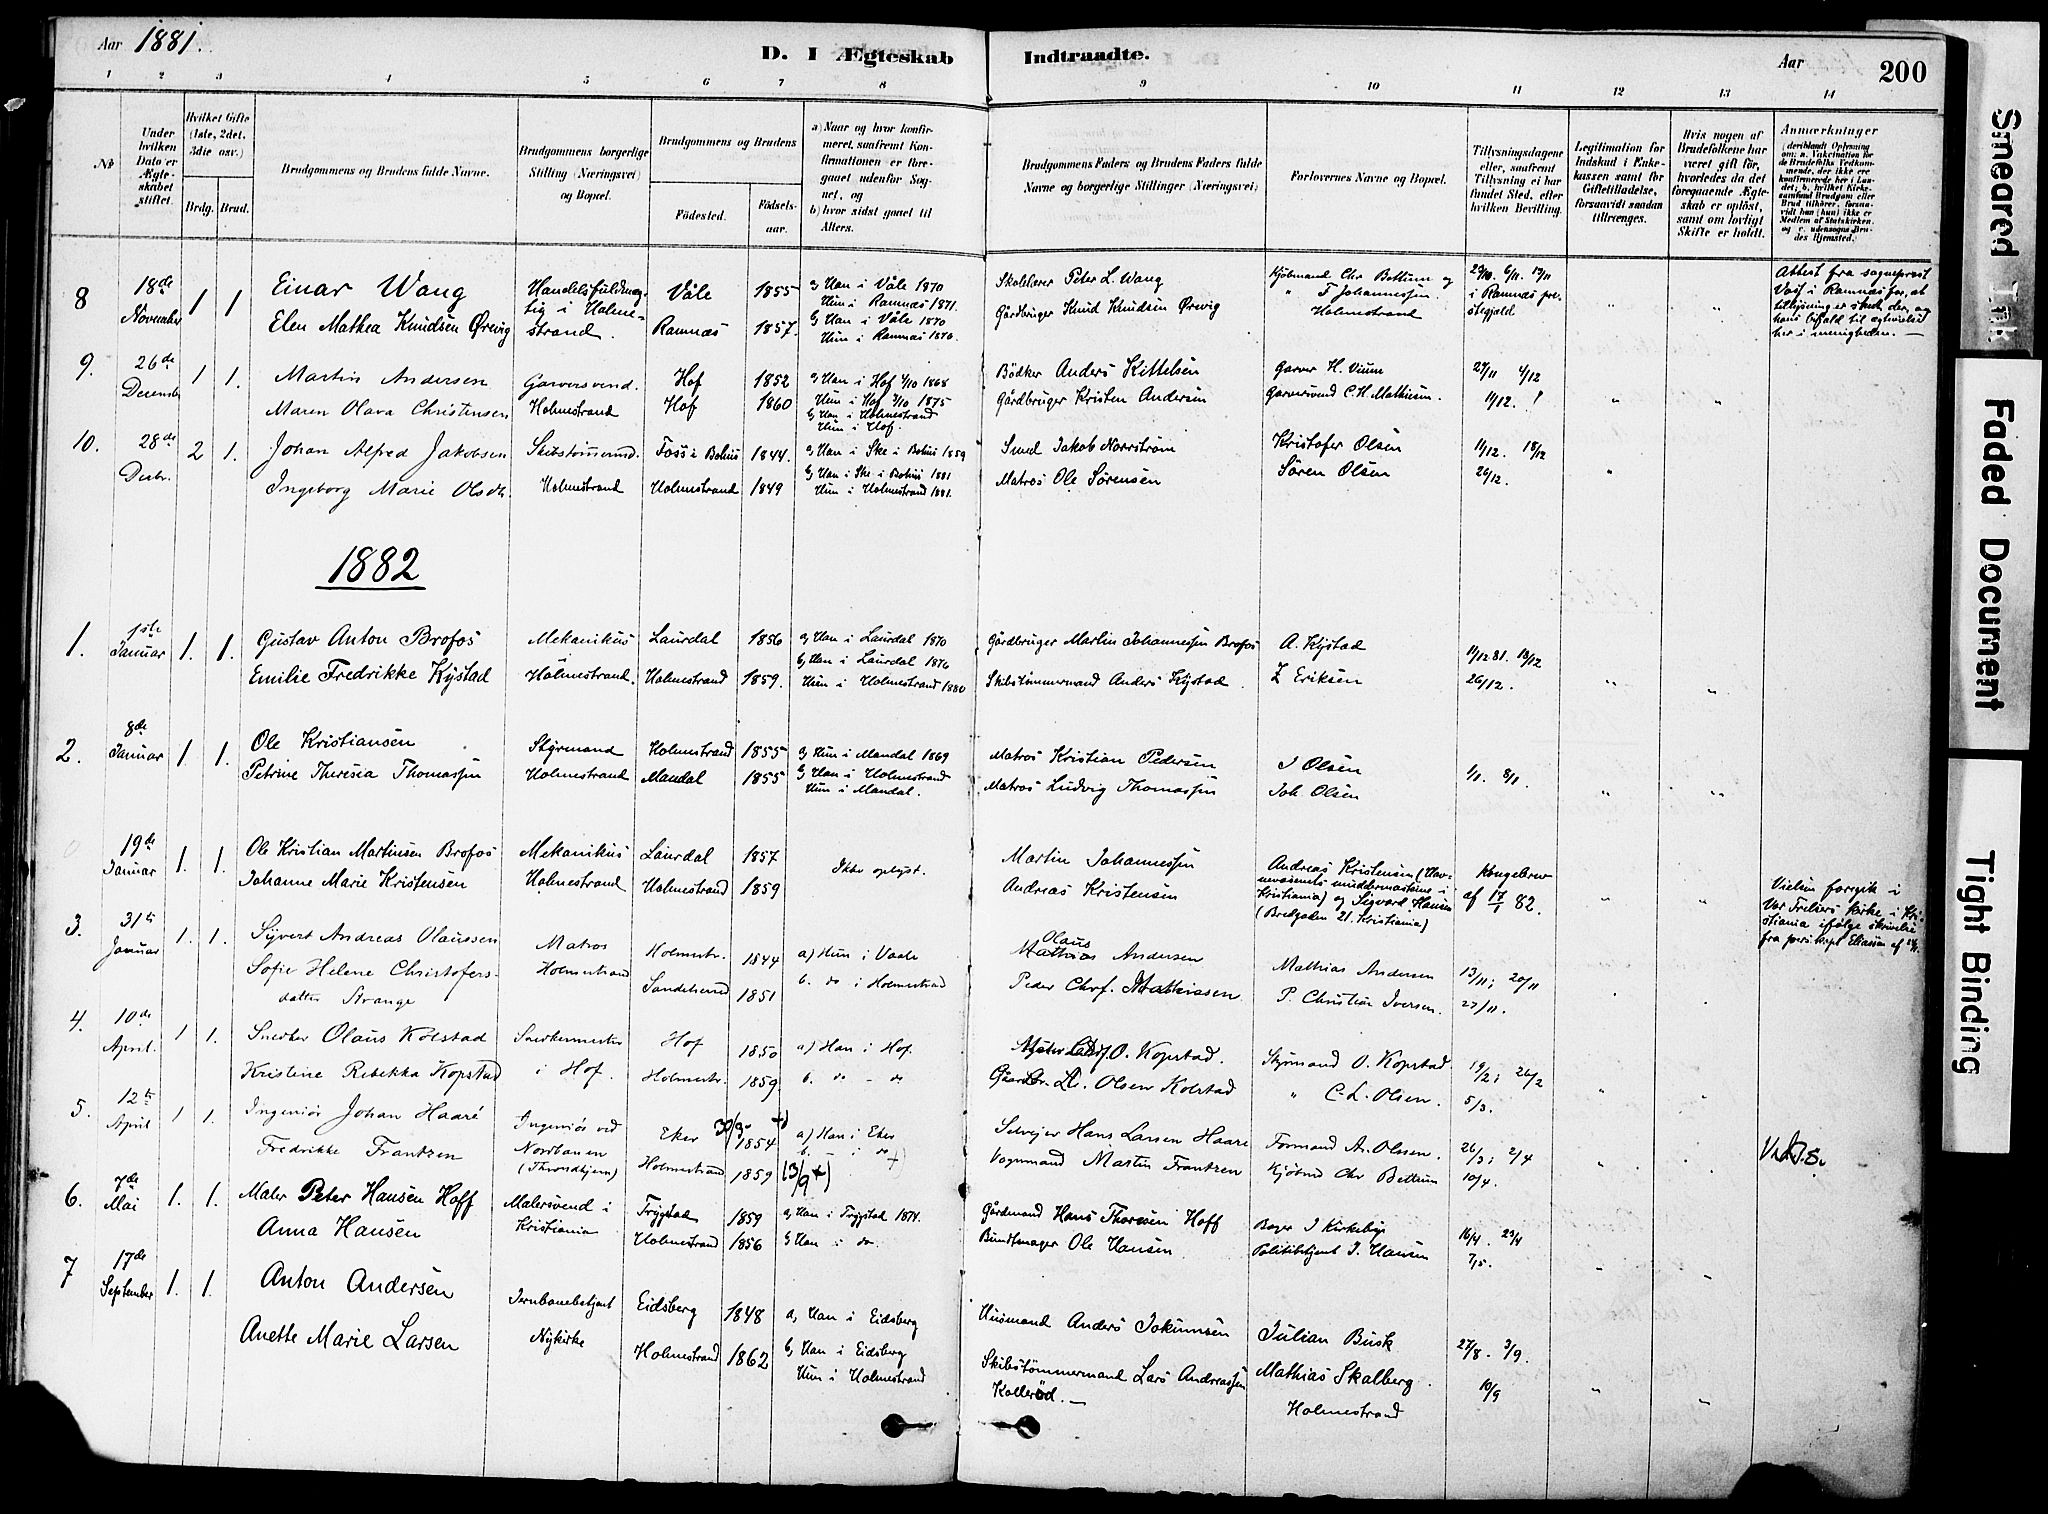 Aar 1881.
D. I Ægteskab Indtraadte.
Aar
200
1 2 3 4 5 6 7 8 9 10 11 12 13 14
No
Under hvilken Dato er Ægteskabet stiftet.
Hvilket Gifte (1ste, 2det, 3die osv.)
Brdg. Brud.
Brudgommens og Brudens fulde Navne.
Brudgommens borgerlige Stilling (Næringsvei) og Bopæl.
Brudgommens og Brudens
Fødested.
Fødselsaar.
a) Naar og hvor konfirmeret, saafremt Konfirmationen er foregaaet udenfor Sognet, og
b) hvor sidst gaaet til Alters.
Brudgommens Faders og Brudens Faders fulde Navne og borgerlige Stillinger (Næringsvei)
Forlovernes Navne og Bopæl.
Tillysningsdagene eller, saafremt Tillysning ei har fundet Sted, efter hvilken Bevilling.
Legitimation for Indskud i Enkekassen samt for Giftetilladelse, forsaavidt saadan tiltrænges.
Hvis nogen af Brudefolkene har været gift før, hvorledes da det foregaaende Ægteskab er opløst, samt om lovligt Skifte er holdt.
Anmærkninger
8 18de November 1 1 Einar Wang Handelsfuldmægtig i Holmestrand. Våle 1855 a, Han i Våle 1870 Skolelærer Peter L. Wang Kjøbmand Chr Bettum og
Elen Mathea Knudsen Ørevig Ramnæs 1857. Hun i Ramnæs 1871. b, Han i Våle 1870 Hun i Ramnæs 1876. Gårdbruger Knud Knudsen Ørevig " T Johannessen. Holmestrand i Ramnæs prestegjeld
Attest fra sogneprest
9. 26de Decembr 1 1. Martin Andersen Garversvend. Hof 1852 a, Han i Hof 4/10 1868 Bödker Anders Kittelsen Garver H. Vium 27/11 4/12
Maren Olava Christensen Holmestrand Hof 1860 Hun i Hof 3/10 1875 b, Han i Holmestrand Hun i Hof. Gårdbruger Kristen Andersen Garversvend C. H. Mathiesen. 11/12.
10. 28de Decbr. 2 1. Johan Alfred Jakobsen Foss i Bohus 1844. a, Han i Ske i Bohus 1859 Smed Jakob Norrström Kristofer Olsen 11/12. 18/12
Ingeborg Marie Olsdtr. Holmestrand Holmestrand 1849 b, Han i Ske i Bohus 1881 Hun i Holmestrand 1881. Matros Ole Sørensen Søren Olsen 26/12.
1882
1. 1ste Januar 1. 1. Gustav Anton Brofos Mekanikus Laurdal 1856 a, Han i Laurdal 1870 Gårdbruger Martin Johannessen Brofos A. Kystad 11/12 81. 18/12
Emilie Fredrikke Kystad Holmestrand. Holmestrand 1859. b, Han i Laurdal 1876 Hun i Holmestrand 1880 Skibstømmermand Anders Kystad. Z Eriksen 26/12.
2. 8de Januar 1. 1. Ole Kristiansen Styrmand Holmestrand 1855 a, Hun i Mandal 1869 Matros Kristian Pedersen J Olsen 1/1. 8/1.
Petrine Theresia Thomassen Holmestrand Mandal 1855 b, Han i Holmestrand Hun i Mandal. Matros Ludvig Thomassen Joh. Olsen
19de Januar 1. 1. Ole Kristian Martinsen Brofos Mekanikus Laurdal 1857 Ikke oplyst. Martin Johannessen Andreas Kristensen (Havnevæsenets muddermaskine i Kristiania) og Segvard Hansen (Bredgaden 21. Kristiania) Kongebrev af 17/1 82.
Johanne Marie Kristensen Holmestrand Holmestrand 1859 Andreas Kristensen
Vielsen foregik i Vor Frelsers kirke i Kristiania ifølge skrivelse fra
3. 31te Januar 1. 1. Syvert Andreas Olaussen Matros Holmestr. 1844 a) Hun i Vaale Olaus Mathias Andersen Mathias Andersen 13/11; 20/11
Sofie Helene Christofersdatter Strange Holmestrand Sandeherred 1851 b. do i Holmestrad Peder Chrf. Mathiassen. P. Christian Iversen. 27/11.
4. 10de April. 1 1. Snedker Olaus Kolstad Snedkermester Hof 1850 a) Han i Hof. O. Kopstad. Styrmand O. Kopstad 19/2; 26/2
Kristine Rebekka Kopstad i Hof. Holmestr. 1859 b. do - do Olsen Kolstad " C. L. Olsen. 5/3.
5. 12te April 1 1. Ingeniør Johan Haaré Ingeniør ved Eker 1854 a) Han i Eker Selvejer Hans Larsen Haare Formand A. Olsen. 26/3; 2/4
Fredrikke Frantzen Nordbanen (Throndhjem) Holmestrand 1859 b. - i do Vognmand Martin Frantzen Kjøbmd Chr Bettum 10/4.
6. 7de Mai 1. 1. Maler Peter Hansen Hoff Malersvend i Trygstad 1859 a, Han i Trygstad 1874. Gårdmand Hans Thoresen Hoff Bager J Kirkeby 16/4. 23/4
Anna Hansen Kristiania Holmestrand 1856 b, Han i do. Bundtmager Ole Hansen Politibetjent I. Hansen 7/5.
7 17de September 1. 1. Anton Andersen Jernbanebetjent Eidsberg 1848 a, Han i Eidsberg Husmand Anders Jokumsen Julian Busk 27/8. 3/9.
Anette Marie Larsen Nykirke Holmestrand 1862 b, Han i Eidsberg Hun i Holmestrand Skibstømmermand Lars Andreassen Kollerød.— Mathias Skalberg. Holmestrand 10/9
Smeared Ink
Faded Document
Tight Binding